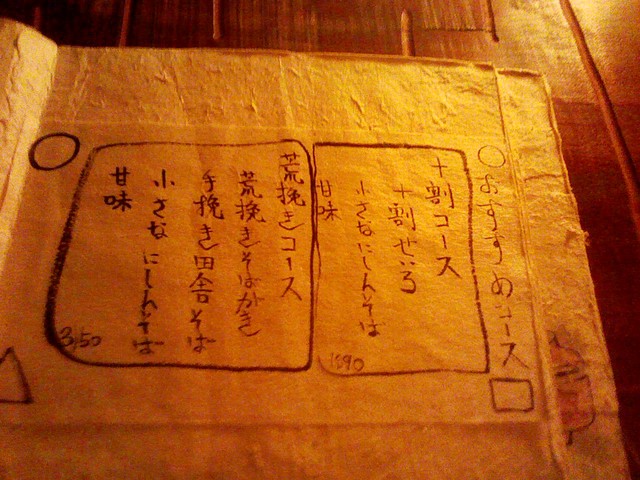 おすすめコース
十割コース
十割せいろ
小さなにしんそば
甘味
1890
荒挽きコース
荒挽きそばがき
手挽き田舎そば
小さなにしんそば
甘味
3150